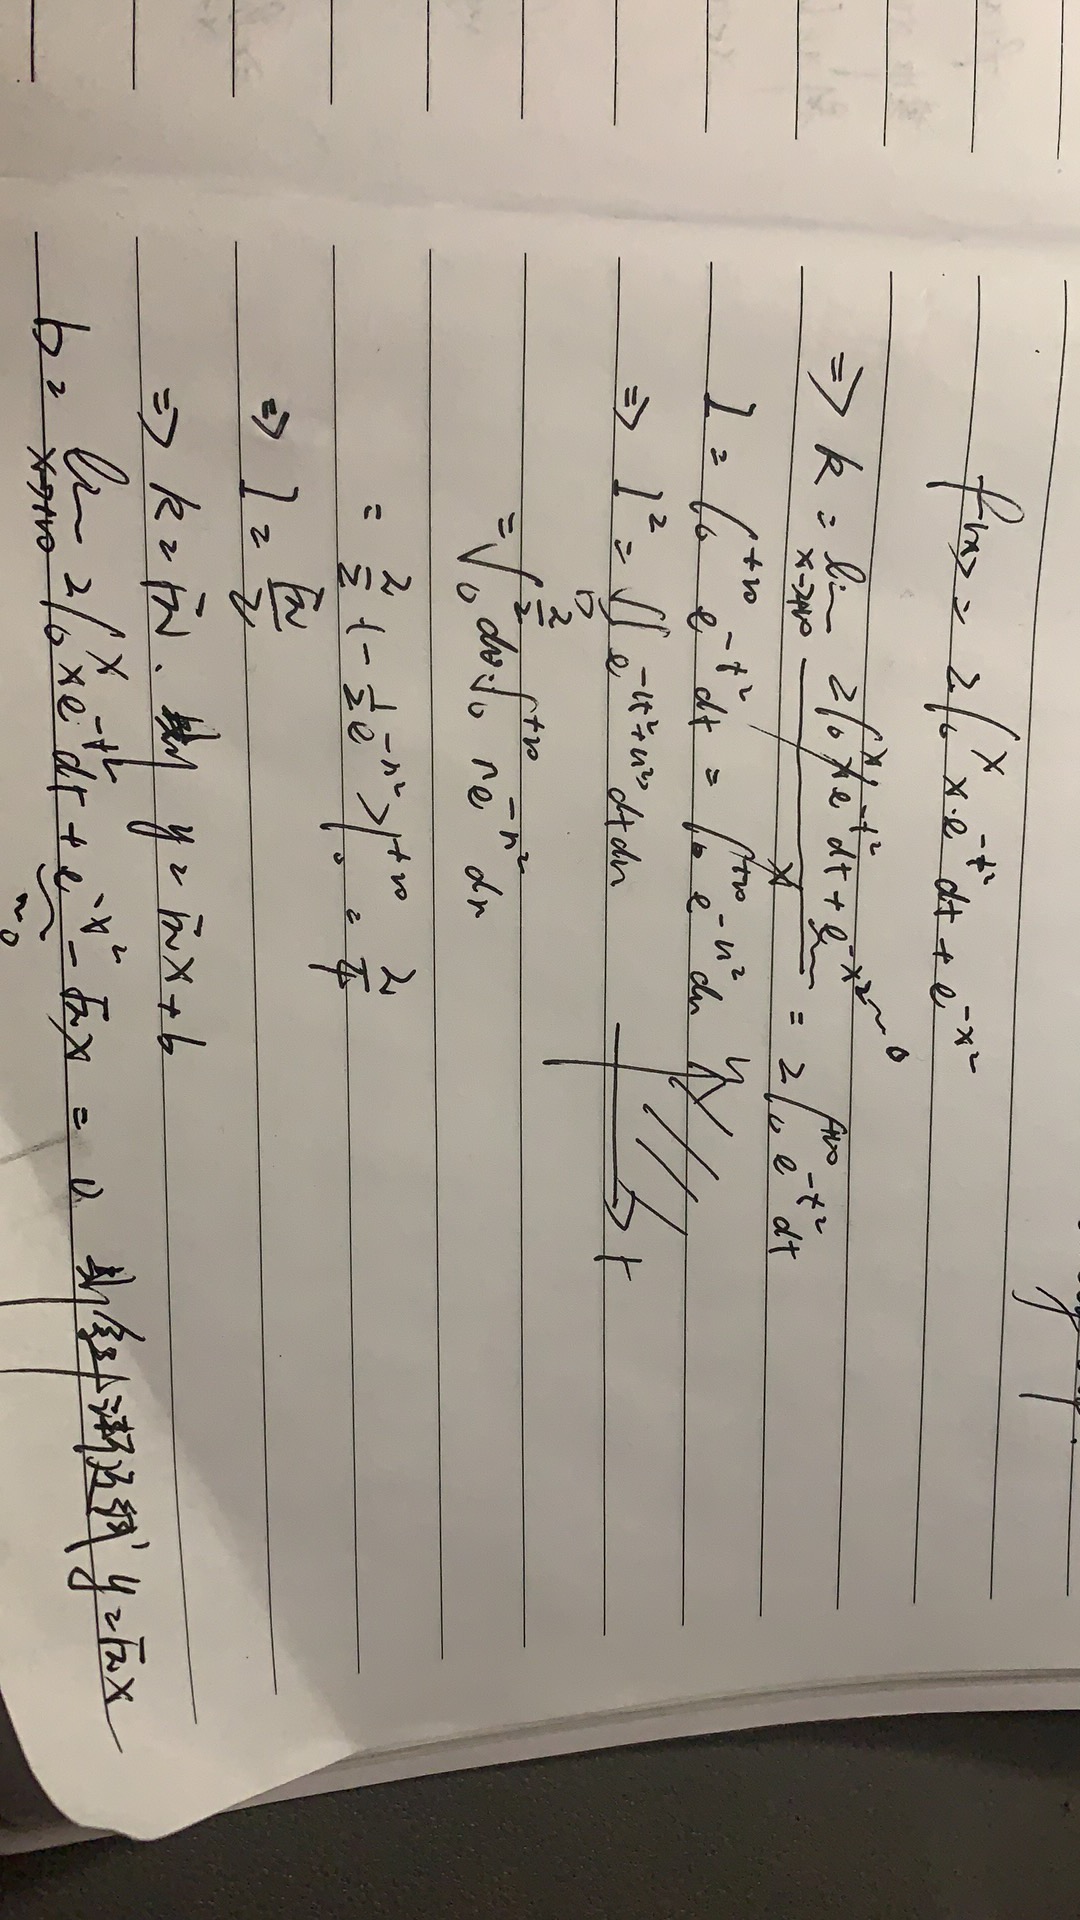 f(x) = 2∫₀ˣ x·e^{-t²} dt + e^{-x²}
⇒ k = lim_{x→+∞} (2∫₀ˣ x e^{-t²} dt + e^{-x²})/x = 2∫₀^{+∞} e^{-t²} dt
~0
I = ∫₀^{+∞} e^{-t²} dt = ∫₀^{+∞} e^{-u²} du
⇒ I² = ∬_D e^{-(t²+u²)} dt du
u
t
= ∫₀^{π/2} dθ·∫₀^{+∞} r e^{-r²} dr
= π/2 (-1/2 e^{-r²})|₀^{+∞} = π/4
⇒ I = √π/2
⇒ k = √π. y = √π x + b
b = lim_{x→+∞} 2∫₀ˣ x e^{-t²} dt + e^{-x²} - √π x = 0 斜渐近线 y = √π x
~0